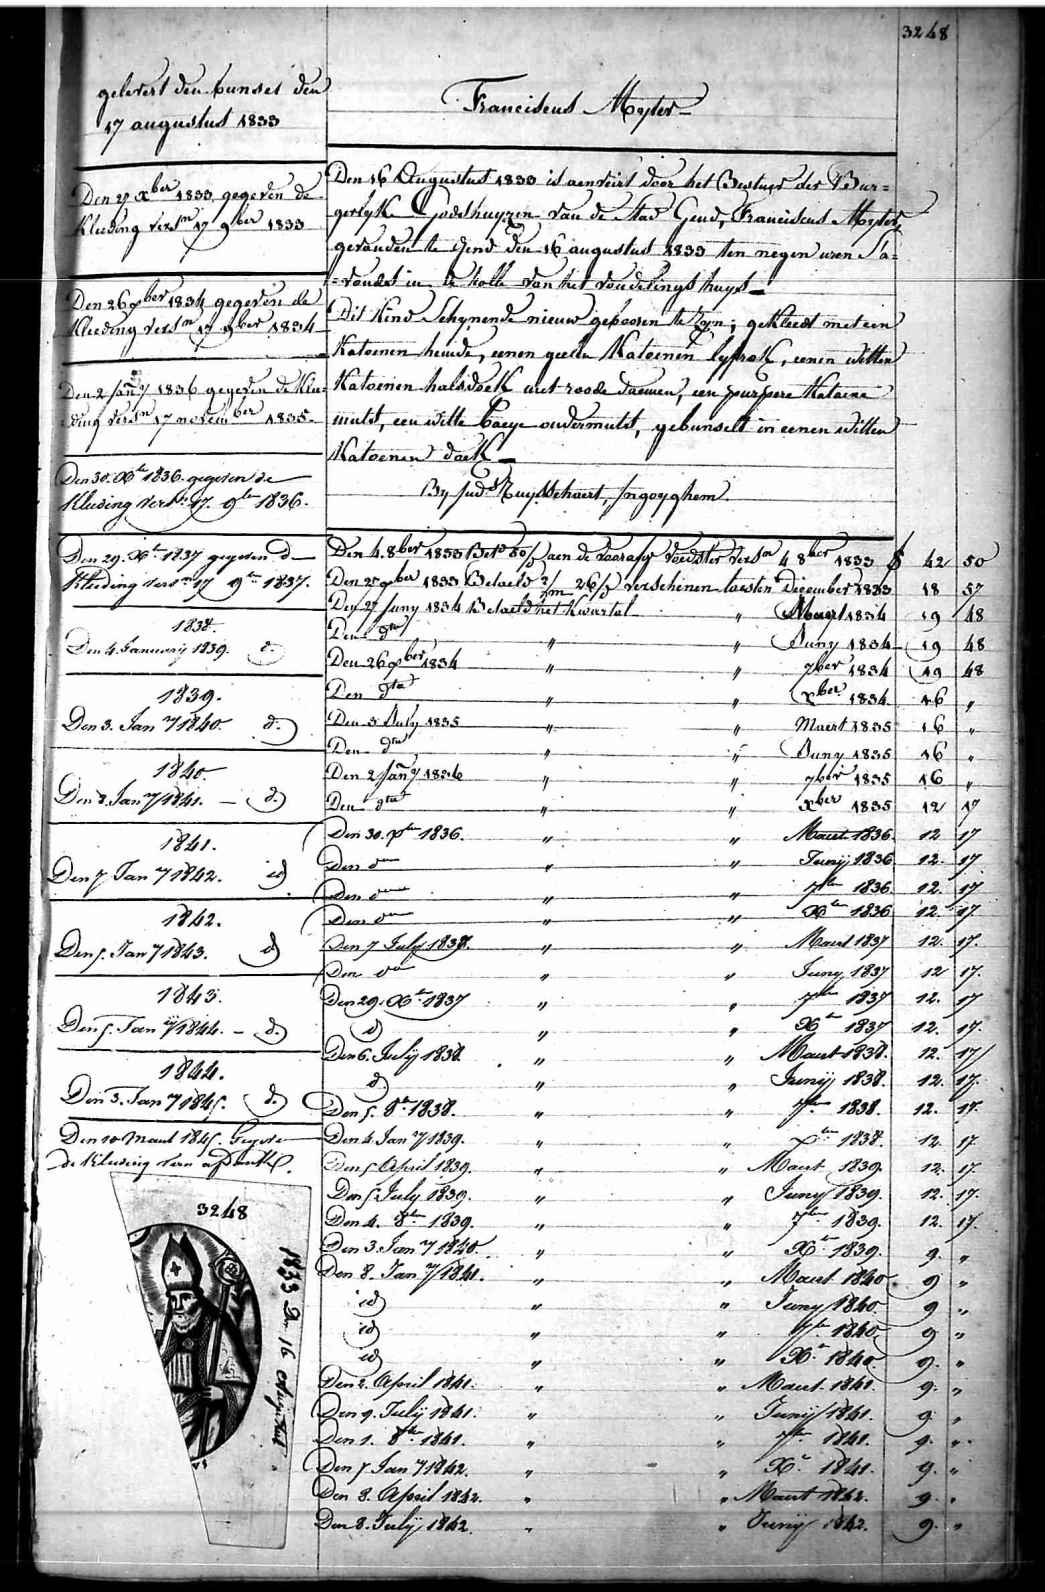 3248
gelevert den bunsel den
17 augustus 1833
Franciscus Myter
Den 27 xber 1833 gegeven de
Kleeding versn 17 9ber 1833
Den 26 9ber 1834 gegeven de
Kleeding versn 17 9ber 1834
Den 2 Jany 1836 gegeven de Klee-
ding versn 17 november 1835
Den 30 Xbr 1836 gegeven de
Kleeding versn 17 9br 1836.
Den 29. Xbr 1837 gegeven d
Kleeding versn 17 9br 1837.
1838.
Den 4. January 1839. d.
1839.
Den 3. Jany 1840. d.
1840.
Den 8. Jany 1841. - d.
1841.
Den 7 Jany 1842. id
1842.
Den 5. Jany 1843. d
1843.
Den 5. Jany 1844. - d.
1844.
Den 3. Jany 1845. d.
Den 10 Maert 1845. Gegeven
de Kleeding
3248
1833 Den 16 Augustus
Den 16 Augustus 1833 is aenveirt door het Bestuer der Bur-
gerlyke Godshuyzen van de stad Gend, Franciscus Myter,
gevonden te Gend den 16 augustus 1833 ten negen uren s'a-
-vonds in de rolle van het vondelings huys
Dit Kind schynende nieuw geboren te zyn; gekleedt met een
Katoenen hemde, eenen geelen Katoenen lyfrok, eenen witten
Katoenen halsdoek met roode blaemen, een purpere Katoene
muts, een witte baeye ondermuts, gebunselt in eenen witten
Katoenen doek
By Jud. Ruysschaert, Ingoyghem
Den 4 8ber 1833 Bet aen de voorsz voedster versn 4 8ber 1833 42 50
Den 27 9ber 1833 Betaeld verschenen laesten December 1833 18 57
Den 27 Juny 1834 Betaeld het Kwartal " Maert 1834 19 48
Den dto " " Juny 1834 19 48
Den 26 9ber 1834 " " 7ber 1834 19 48
Den dto " " xber 1834 16 "
Den 3 July 1835 " " Maert 1835 16 "
Den dto " " Juny 1835 16 "
Den 2 Jany 1836 " " 7ber 1835 16 "
Den dto " " xber 1835 12 17
Den 30. xbr 1836. " " Maert 1836. 12 17
Den do " " Junij 1836 12. 17.
Den do " " 7br 1836 12. 17
Den do " " Xbr 1836 12. 17.
Den 7 July 1838. " " Maert 1837 12. 17.
Den do " " Juny 1837 12 17.
Den 29. Xbr 1837 " " 7br 1837 12. 17
d " " Xbr 1837 12. 17.
Den 6. Julij 1838. " " Maert 1838. 12. 17
d " " Junij 1838. 12. 17.
Den 5. 8br 1838. " " 7br 1838. 12. 17.
Den 4 Jany 1839. " " xbr 1838. 12. 17
Den 5 April 1839. " " Maert 1839. 12. 17
Den 5 July 1839. " " Juny 1839. 12. 17.
Den 4. 8br 1839. " " 7br 1839. 12. 17.
Den 3. Jany 1840. " " Xbr 1839. 9. "
Den 8. Jany 1841. " " Maert 1840. 9 "
id " " Juny 1840. 9 "
id " " 7br 1840. 9 "
id " " Xbr 1840. 9. "
Den 2. April 1841. " " Maert 1841. 9. "
Den 9. Julij 1841. " " Junij 1841. 9 "
Den 1. 8br 1841. " " 7br 1841. 9. "
Den 7 Jany 1842. " " Xbr 1841. 9. "
Den 8. April 1842. " " Maert 1842. 9. "
Den 8. Julij 1842. " " Junij 1842. 9. "